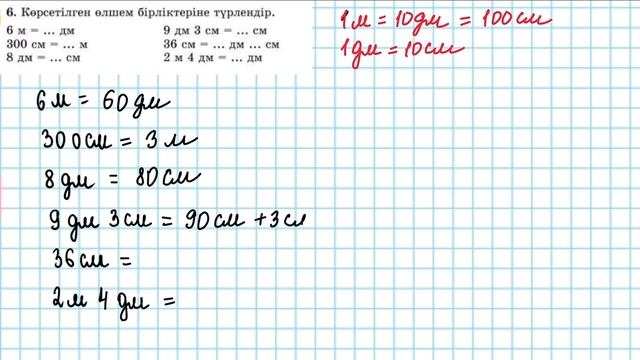 6. Көрсетілген өлшем бірліктеріне түрлендір.
6 м = ... дм
300 см = ... м
8 дм = ... см
9 дм 3 см = ... см
36 см = ... дм ... см
2 м 4 дм = ... дм
1м = 10дм = 100см
1дм = 10см
6м = 60дм
300см = 3м
8дм = 80см
9дм 3см = 90см +3см
36см =
2м 4дм =